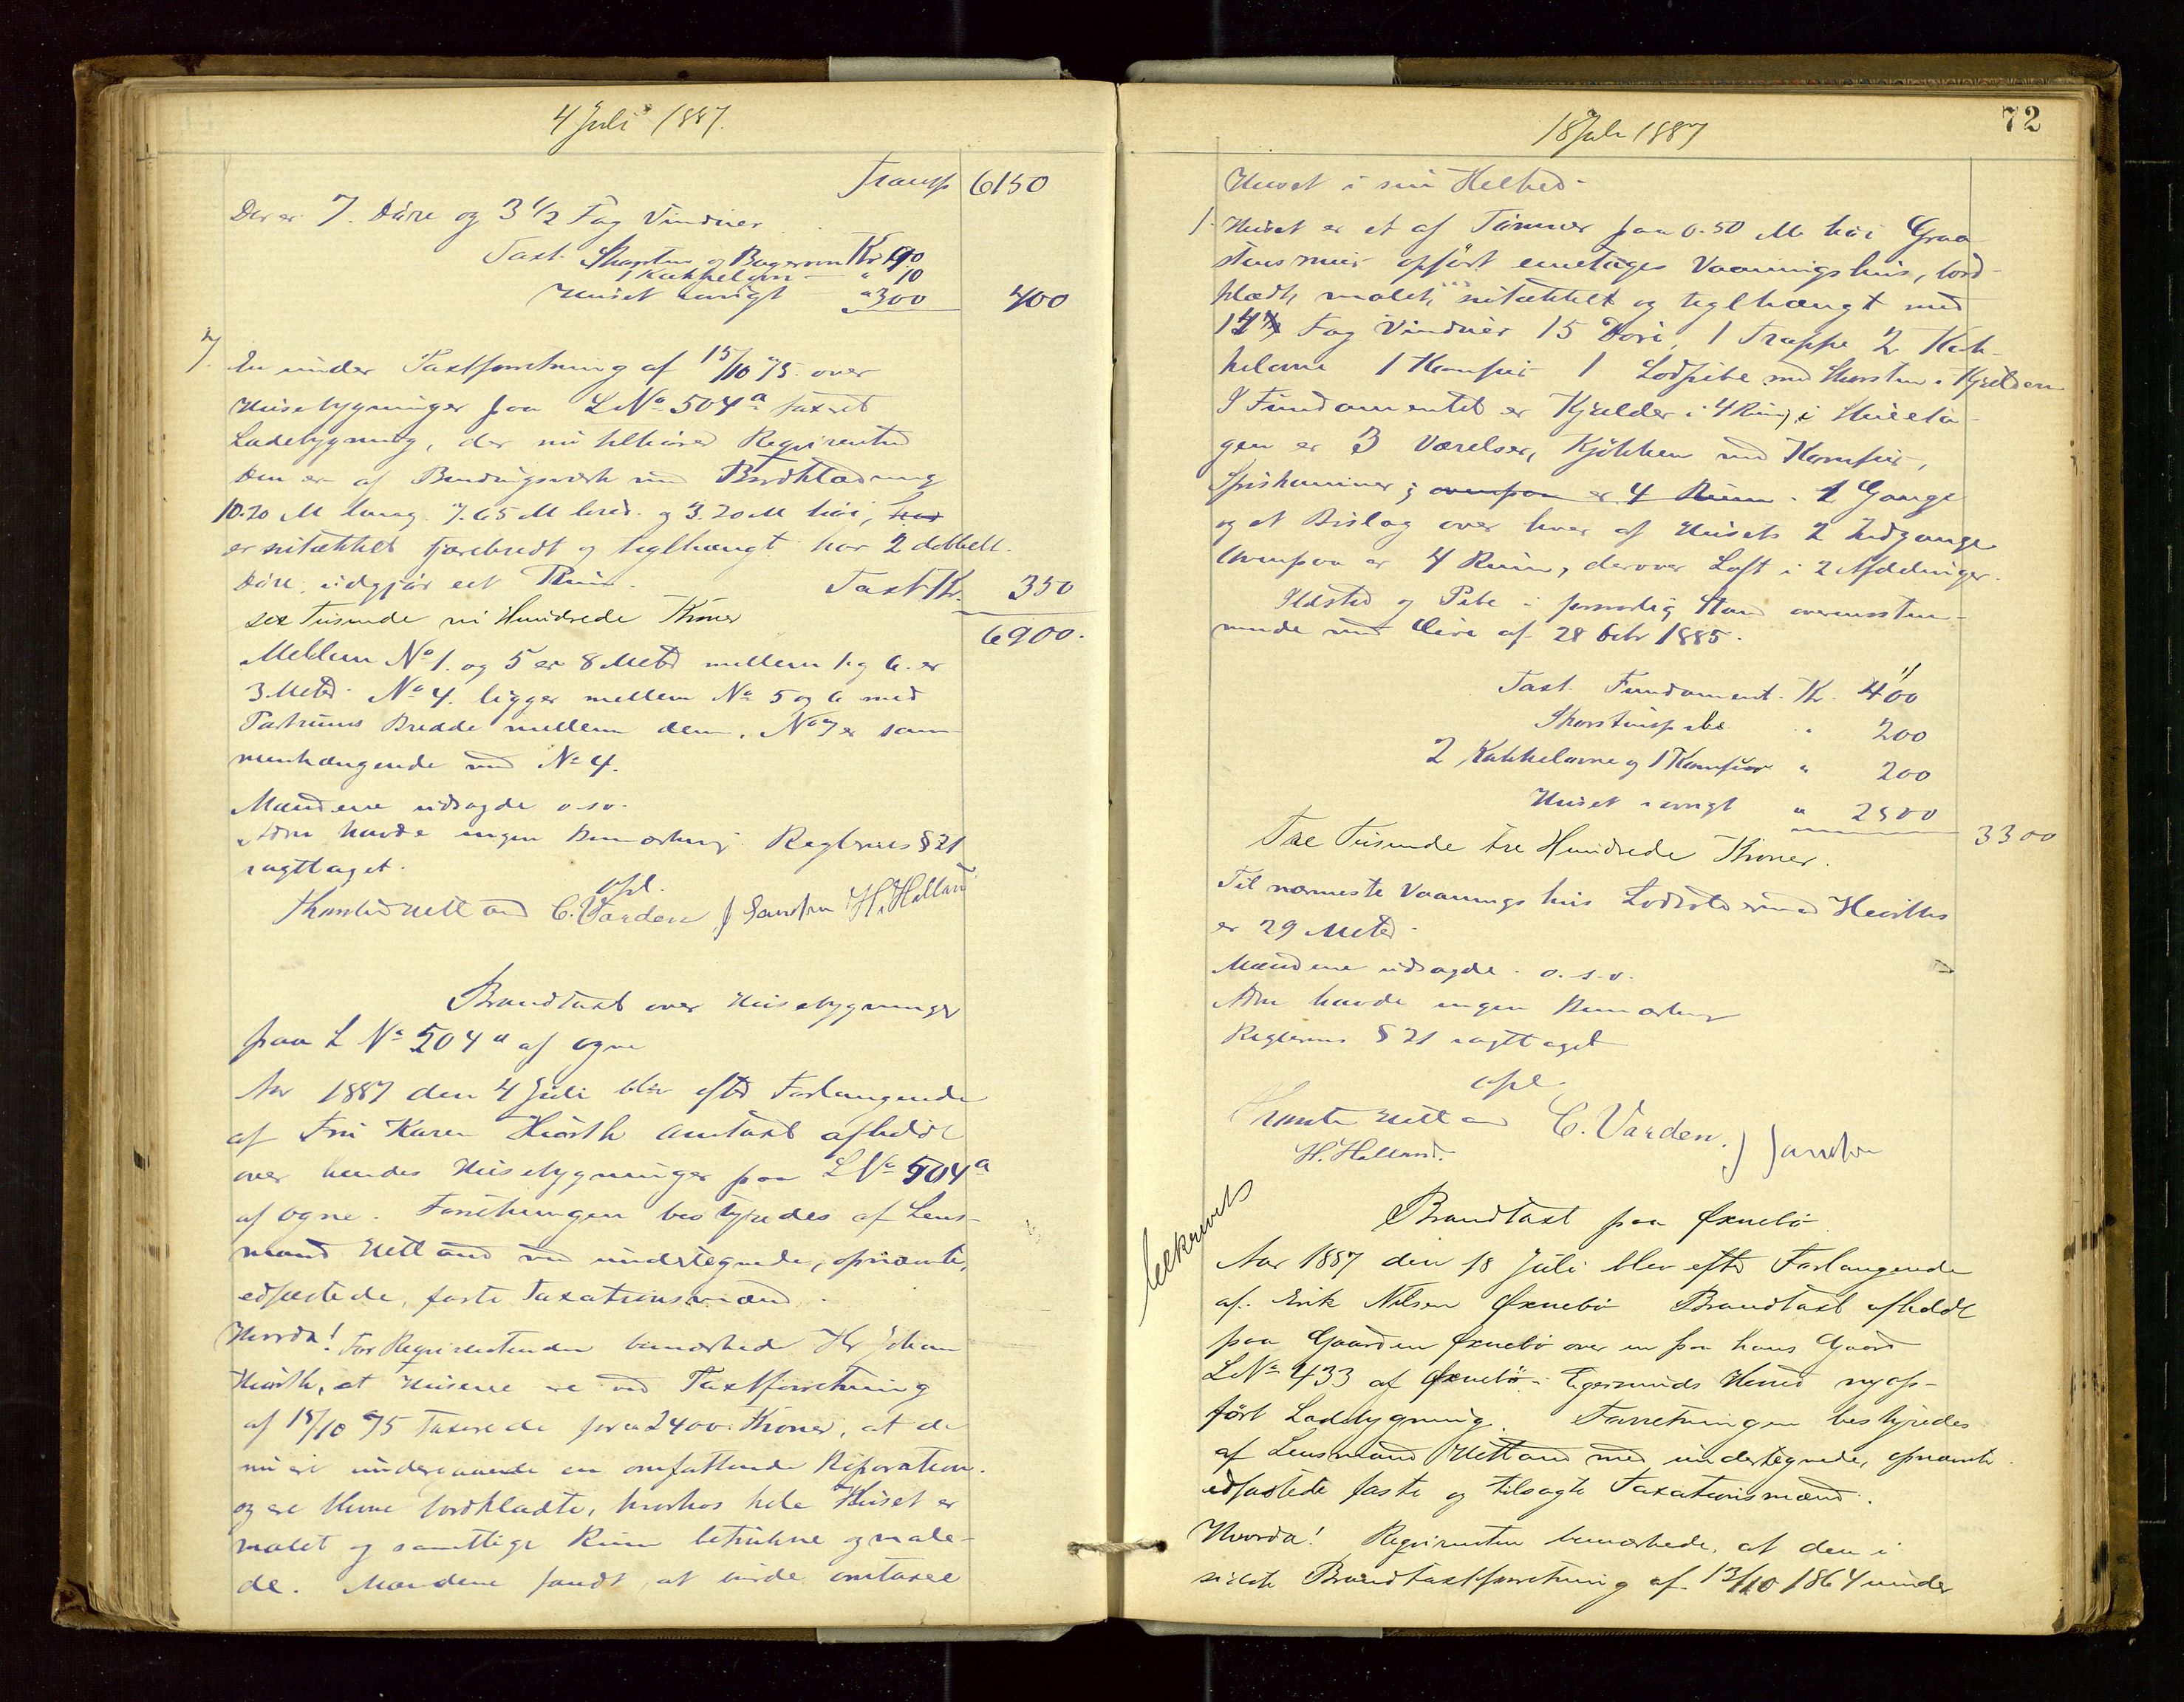 4 Juli 1887.
Transp 6150
Der er 7. Döre og 3 1/2 Fag Vinduer
Taxt Skorsten og Bagerovn Kr 90
1 Kakkelovn " 10
Huset iøvrigt " 300 400
7. En under Taxtforretning af 15/10 75 over
Husebygninger paa L No 504 a taxeret
Ladebygning, der nu tilhører Requirenten
Den er af Bindingsverk med Bordklædning
10.20 M lang. 7.65 M bred. og 3.20 M høi, har
er nitækket tjærebredt og teglhængt har 2 dobbelt.
Döre, udgjør eet Rum. Taxt Kr. 350
sex Tusinde ni Hundrede Kroner 6900.
Mellem No 1. og 5 er 8 Meter mellem 1 og 6. er
3 Meter. No 4. ligger mellem No 5 og 6 med
Taktrums Bredde mellem dem. No 7 er sam-
menhængende med No 4.
Mændene udsagde o.s.v.
Adm havde ingen Bemærkning. Reglernes § 21
iagttaget.
opl.
Thomte Netland C. Varden J Sandon H. Helland
Brandtaxt over Husebygninger
paa L No 504 a af Ogne
Aar 1887 den 4 Juli blev efter Forlangende
af Fru Karen Hiorth Omtaxt afholdt
over hendes Husebygninger paa L No 504 a
af Ogne. Forretningen bestyredes af Lens-
mand Netland med undertegnede, opnævnte,
edfæstede, faste Taxationsmænd.
Hvorda! For Requirentinden bemærkede Hr Johan
Hiorth, at Husene ere ved Taxtforretning
af 15/10 75 taxerede for 2400 Kroner, at de
nu ere undergaaende en omfattende Reparation.
og ere bordklædte, hvorhos hele Huset er
malet og samtlige Rum betrukne og male-
de. Mændene fandt at burde omtaxere
72
18 Juli 1887
Huset i sin Helhed.
1. Huset er et af Tömmer paa 0.50 M høi Graa
stensmur opfört eenetages Vaaningshus, bord-
klædt, malet, nitækket og teglhængt med
14 Fag Vinduer 15 Döre, 1 Trappe 2 Kak-
kelovne 1 Komfur 1 Lodpibe med Skorsten i Kjelderen
I Fundamentet er Kjælder i 4 Rum, i Hueeta-
gen er 3 Værelser, Kjökken med Komfur,
Spiskammer; ovenpaa er 4 Rum. 2 Gange
og et Bislag over hver af Husets 2 Indgange
Ovenpaa er 4 Rum, derover Loft i 2 Afdelinger.
Ildsted og Pibe i forsvarlig Stand overensstem-
mende med Circ af 28 Octr 1885.
Taxt. Fundament. Kr. 400
Skorstenspibe " 200
2 Kakkelovne og 1 Komfur " 200
Huset iøvrigt " 2500
Tre Tusinde tre Hundrede Kroner. 3300
Til nærmeste Vaaningshus
er 29 Meter.
Mændene udsagde o.s.v.
Adm havde ingen Bemærkning
Reglernes § 21 iagttaget
opl.
Thomte Netland C. Varden. J Sandon
H. Helland.
Brandtaxt paa Øxnebö
Aar 1887 den 18 Juli blev efter Forlangende
af Erik Nilsen Øxnebö Brandtaxt afholdt
paa Gaarden Øxnebö over en paa hans Gaard
L No 433 af Øxnebö i Egersunds Herred nyop-
fört Ladebygning. Forretningen bestyredes
af Lensmand Netland med undertegnede, opnævnte
edfæstede faste og tilsagte Taxationsmænd.
Hvorda! Requirenten bemærkede, at den i
sidste Brandtaxtforretning af 13/10 1864 under